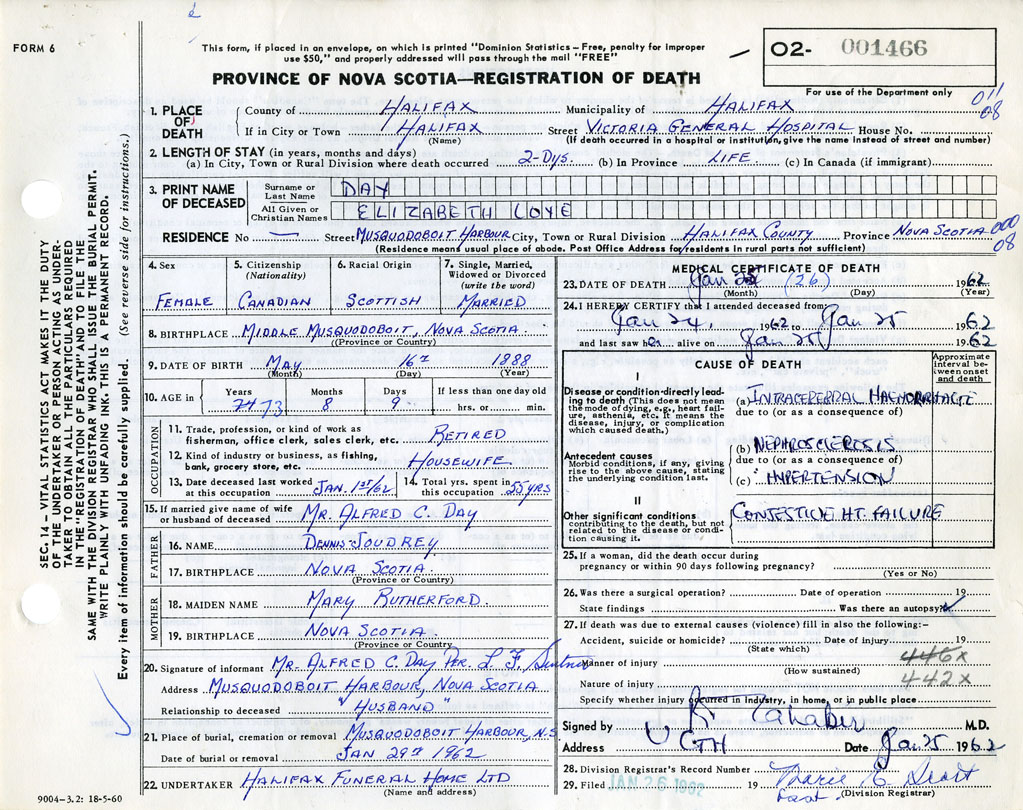 FORM 6
This form, if placed in an envelope, on which is printed "Dominion Statistics – Free, penalty for improper
use $50," and properly addressed will pass through the mail "FREE"
PROVINCE OF NOVA SCOTIA—REGISTRATION OF DEATH
O2- 001466
For use of the Department only
011
08
SEC. 14 – VITAL STATISTICS ACT MAKES IT THE DUTY
OF THE UNDERTAKER OR PERSON ACTING AS UNDER-
TAKER TO OBTAIN ALL THE PARTICULARS REQUIRED
IN THE "REGISTRATION OF DEATH" AND TO FILE THE
SAME WITH THE DIVISION REGISTRAR WHO SHALL ISSUE THE BURIAL PERMIT.
WRITE PLAINLY WITH UNFADING INK. THIS IS A PERMANENT RECORD.
Every item of information should be carefully supplied. (See reverse side for instructions.)
1. PLACE OF DEATH
County of HALIFAX Municipality of HALIFAX
If in City or Town HALIFAX Street VICTORIA GENERAL HOSPITAL House No.
(Name) (If death occurred in a hospital or institution, give the name instead of street and number)
2. LENGTH OF STAY (in years, months and days)
(a) In City, Town or Rural Division where death occurred 2-Dys. (b) In Province LIFE (c) In Canada (if immigrant)
3. PRINT NAME OF DECEASED
Surname or Last Name DAY
All Given or Christian Names ELIZABETH LOVE
RESIDENCE No — Street MUSQUODOBOIT HARBOUR City, Town or Rural Division HALIFAX COUNTY Province NOVA SCOTIA 000
08
(Residence means usual place of abode. Post Office Address for residents in rural parts not sufficient)
4. Sex 5. Citizenship (Nationality) 6. Racial Origin 7. Single, Married, Widowed or Divorced (write the word)
FEMALE CANADIAN SCOTTISH MARRIED
8. BIRTHPLACE MIDDLE MUSQUODOBOIT, NOVA SCOTIA
(Province or Country)
9. DATE OF BIRTH MAY 16th 1888
(Month) (Day) (Year)
10. AGE in Years Months Days If less than one day old
74 73 8 9 hrs. or min.
OCCUPATION
11. Trade, profession, or kind of work as
fisherman, office clerk, sales clerk, etc. RETIRED
12. Kind of industry or business, as fishing,
bank, grocery store, etc. HOUSEWIFE
13. Date deceased last worked at this occupation JAN. 1ST/62 14. Total yrs. spent in this occupation 55 YRS
15. If married give name of wife
or husband of deceased MR. ALFRED C. DAY
FATHER
16. NAME DENNIS JOUDREY
17. BIRTHPLACE NOVA SCOTIA
(Province or Country)
MOTHER
18. MAIDEN NAME MARY RUTHERFORD
19. BIRTHPLACE NOVA SCOTIA
(Province or Country)
20. Signature of informant MR. ALFRED C. DAY PER. L. F.
Address MUSQUODOBOIT HARBOUR, NOVA SCOTIA
Relationship to deceased "HUSBAND"
21. Place of burial, cremation or removal MUSQUODOBOIT HARBOUR, N.S
Date of burial or removal JAN 29TH 1962
22. UNDERTAKER HALIFAX FUNERAL HOME LTD
(Name and address)
9004-3.2: 18-5-60
MEDICAL CERTIFICATE OF DEATH
23. DATE OF DEATH Jan (26) 1962
(Month) (Day) (Year)
24. I HEREBY CERTIFY that I attended deceased from:
Jan 24, 1962 to Jan 25 1962
and last saw her alive on Jan 25 1962
CAUSE OF DEATH
Approximate interval between onset and death
I
Disease or condition directly leading to death (This does not mean the mode of dying, e.g., heart failure, asthenia, etc. It means the disease, injury, or complication which caused death.)
(a) INTRACEREBRAL HAEMORRHAGE
due to (or as a consequence of)
Antecedent causes
Morbid conditions, if any, giving rise to the above cause, stating the underlying condition last.
(b) NEPHROSCLEROSIS
due to (or as a consequence of)
(c) HYPERTENSION
II
Other significant conditions
contributing to the death, but not related to the disease or condition causing it.
CONGESTIVE HT. FAILURE
25. If a woman, did the death occur during
pregnancy or within 90 days following pregnancy?
(Yes or No)
26. Was there a surgical operation? Date of operation 19
State findings Was there an autopsy? ✓
27. If death was due to external causes (violence) fill in also the following:-
Accident, suicide or homicide? Date of injury 19
(State which)
Manner of injury 446X
(How sustained)
Nature of injury 442X
Specify whether injury occurred in industry, in home, or in public place
Signed by M.D.
Address Date Jan 25 1962
28. Division Registrar's Record Number
29. Filed JAN 26 1962 19 Marie E
(Division Registrar)